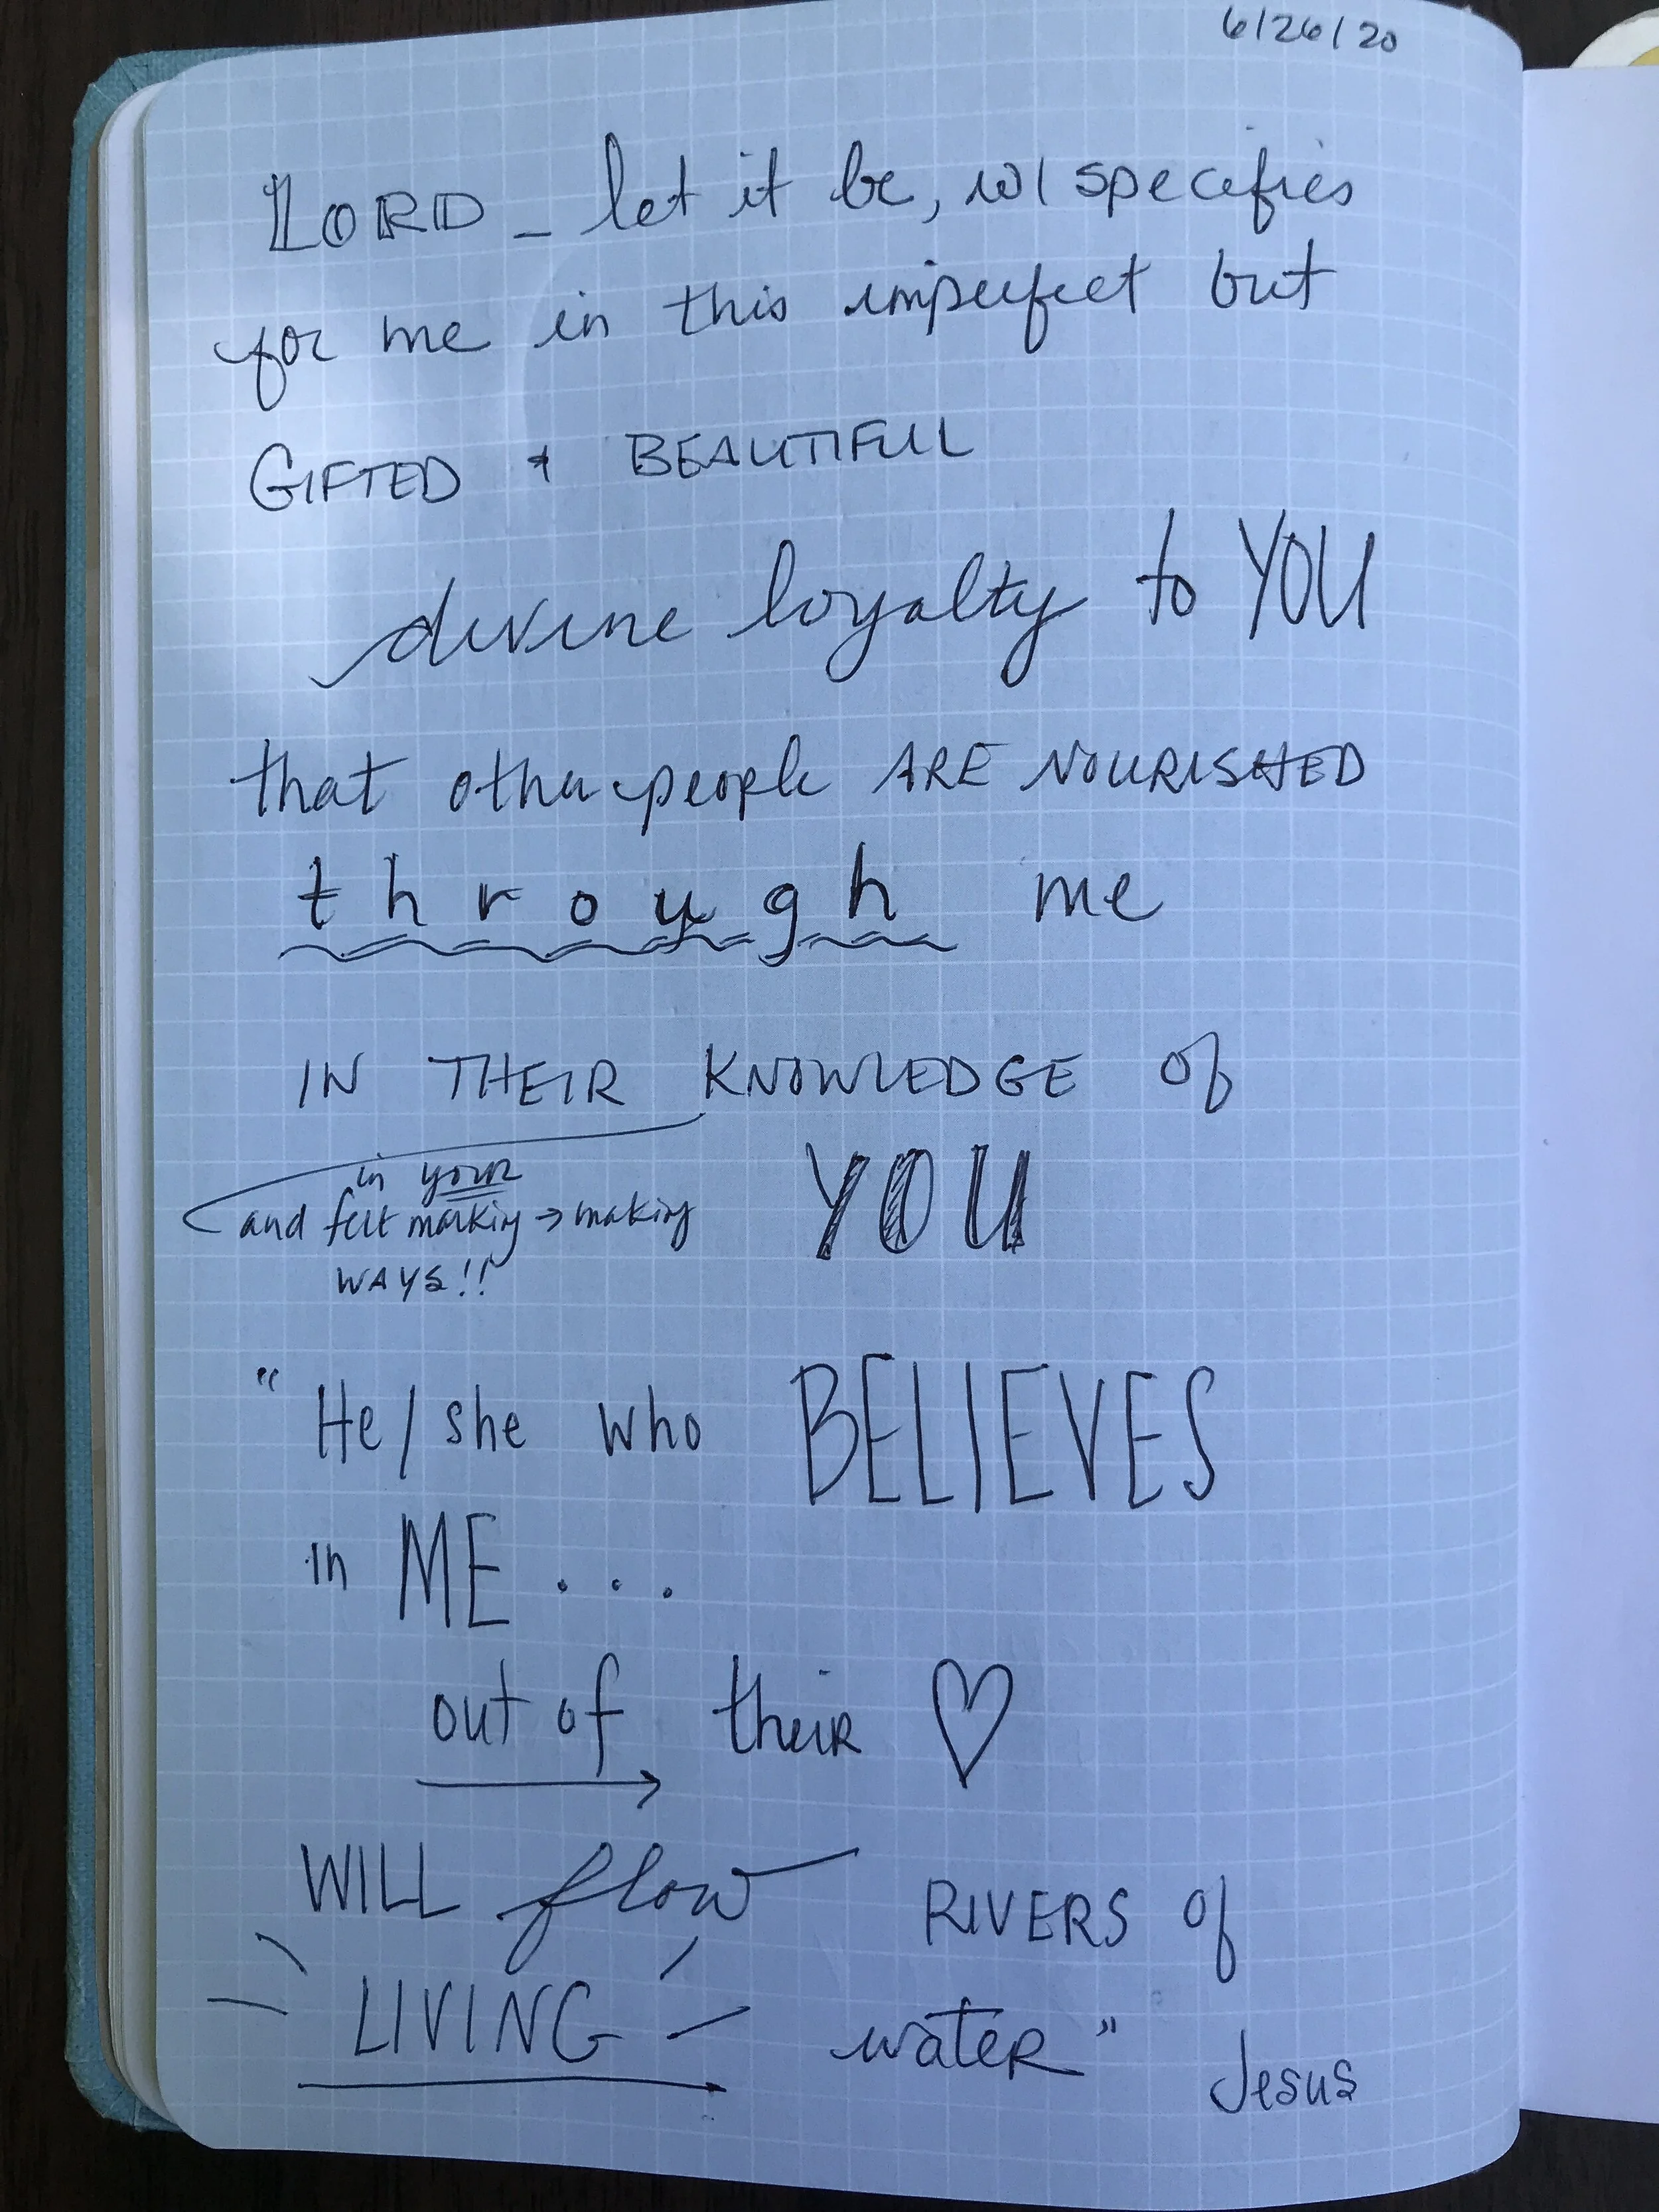 6/26/20
LORD - let it be, w/ specifies
for me in this imperfect but
GIFTED & BEAUTIFUL
divine loyalty to YOU
that other people ARE NOURISHED
through me
IN THEIR KNOWLEDGE of
YOU
in your
and felt making → making
WAYS!!
"He/she who BELIEVES
in ME...
out of their ♡
WILL flow RIVERS of
LIVING water"
Jesus